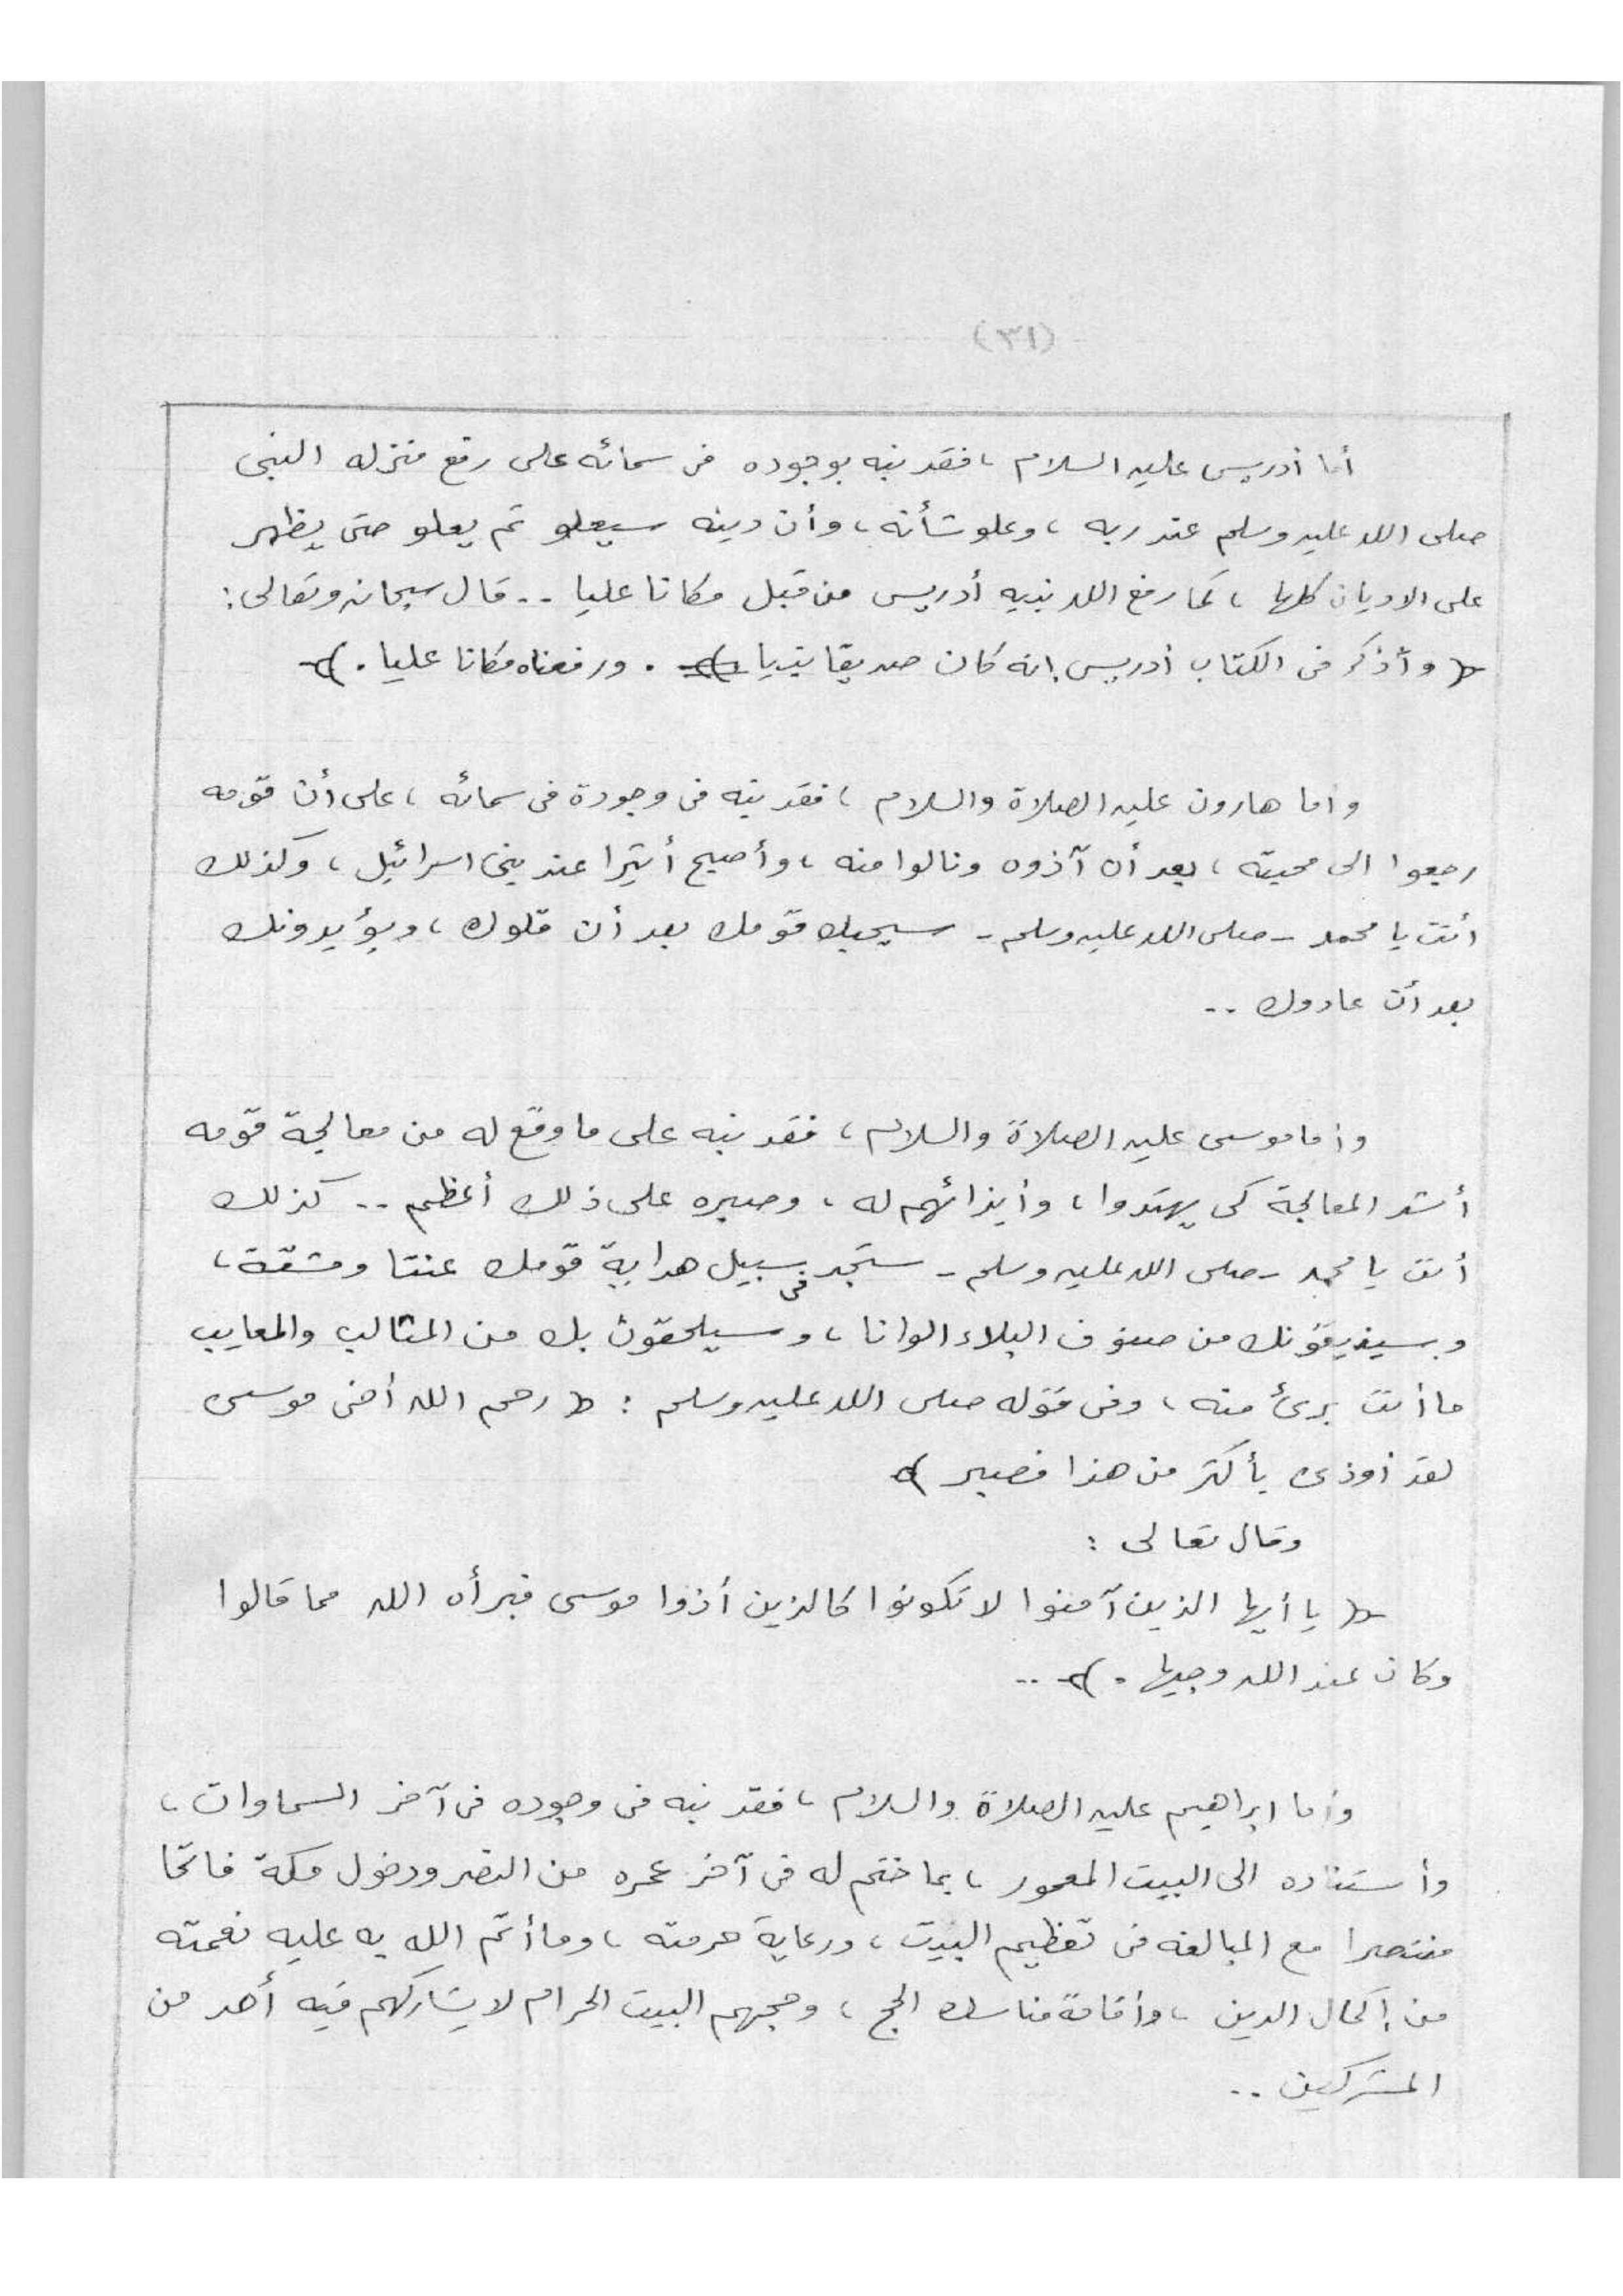 (٣١)
أما أدريس عليه السلام ، فقد نبه بوجوده فى سمائه على رفع منزله النبى
صلى الله عليه وسلم عند ربه ، وعلو شأنه ، وأن دينه سيعلو ثم يعلو حتى يظهر
على الاديان كلها ، كما رفع الله نبيه أدريس من قبل مكانا عليا .. قال سبحانه وتعالى :
﴿ وأذكر فى الكتاب أدريس إنه كان صديقا نبيا . ورفعناه مكانا عليا . ﴾
وأما هارون عليه الصلاة والسلام ، فقد نبه فى وجودة فى سمائه ، على أن قومه
رجعوا الى محبته ، بعد أن آذوه ونالوا منه ، وأصبح أثيرا عند بنى اسرائيل ، وكذلك
أنت يا محمد - صلى الله عليه وسلم - سيحبك قومك بعد أن قلوك ، ويؤيدونك
بعد أن عادوك ..
وأما موسى عليه الصلاة والسلام ، فقد نبه على ما وقع له من معالجة قومه
أشد المعالجة كى يهتدوا ، وأيذائهم له ، وصبره على ذلك أعظم .. كذلك
أنت يا محمد - صلى الله عليه وسلم - ستجد فى سبيل هداية قومك عنتا ومشقة ،
وسيذيقونك من صنوف البلاء الوانا ، وسيلحقون بك من المثالب والمعايب
ما أنت برئ منه ، وفى قوله صلى الله عليه وسلم : ﴿ رحم الله أخى موسى
لقد أوذى بأكثر من هذا فصبر ﴾
وقال تعالى :
﴿ يا أيها الذين آمنوا لا تكونوا كالذين أذوا موسى فبرأه الله مما قالوا
وكان عند الله وجيها . ﴾ ..
وأما ابراهيم عليه الصلاة والسلام ، فقد نبه فى وجوده فى آخر السماوات ،
وأستناده الى البيت المعمور ، بما ختم له فى آخر عمره من النصر ودخول مكة فاتحا
منتصرا مع المبالغه فى تعظيم البيت ، ورعاية حرمته ، وما أتم الله به عليه نعمته
من إكمال الدين ، وأقامة مناسك الحج ، وحجهم البيت الحرام لا يشاركهم فيه أحد من
المشركين ..